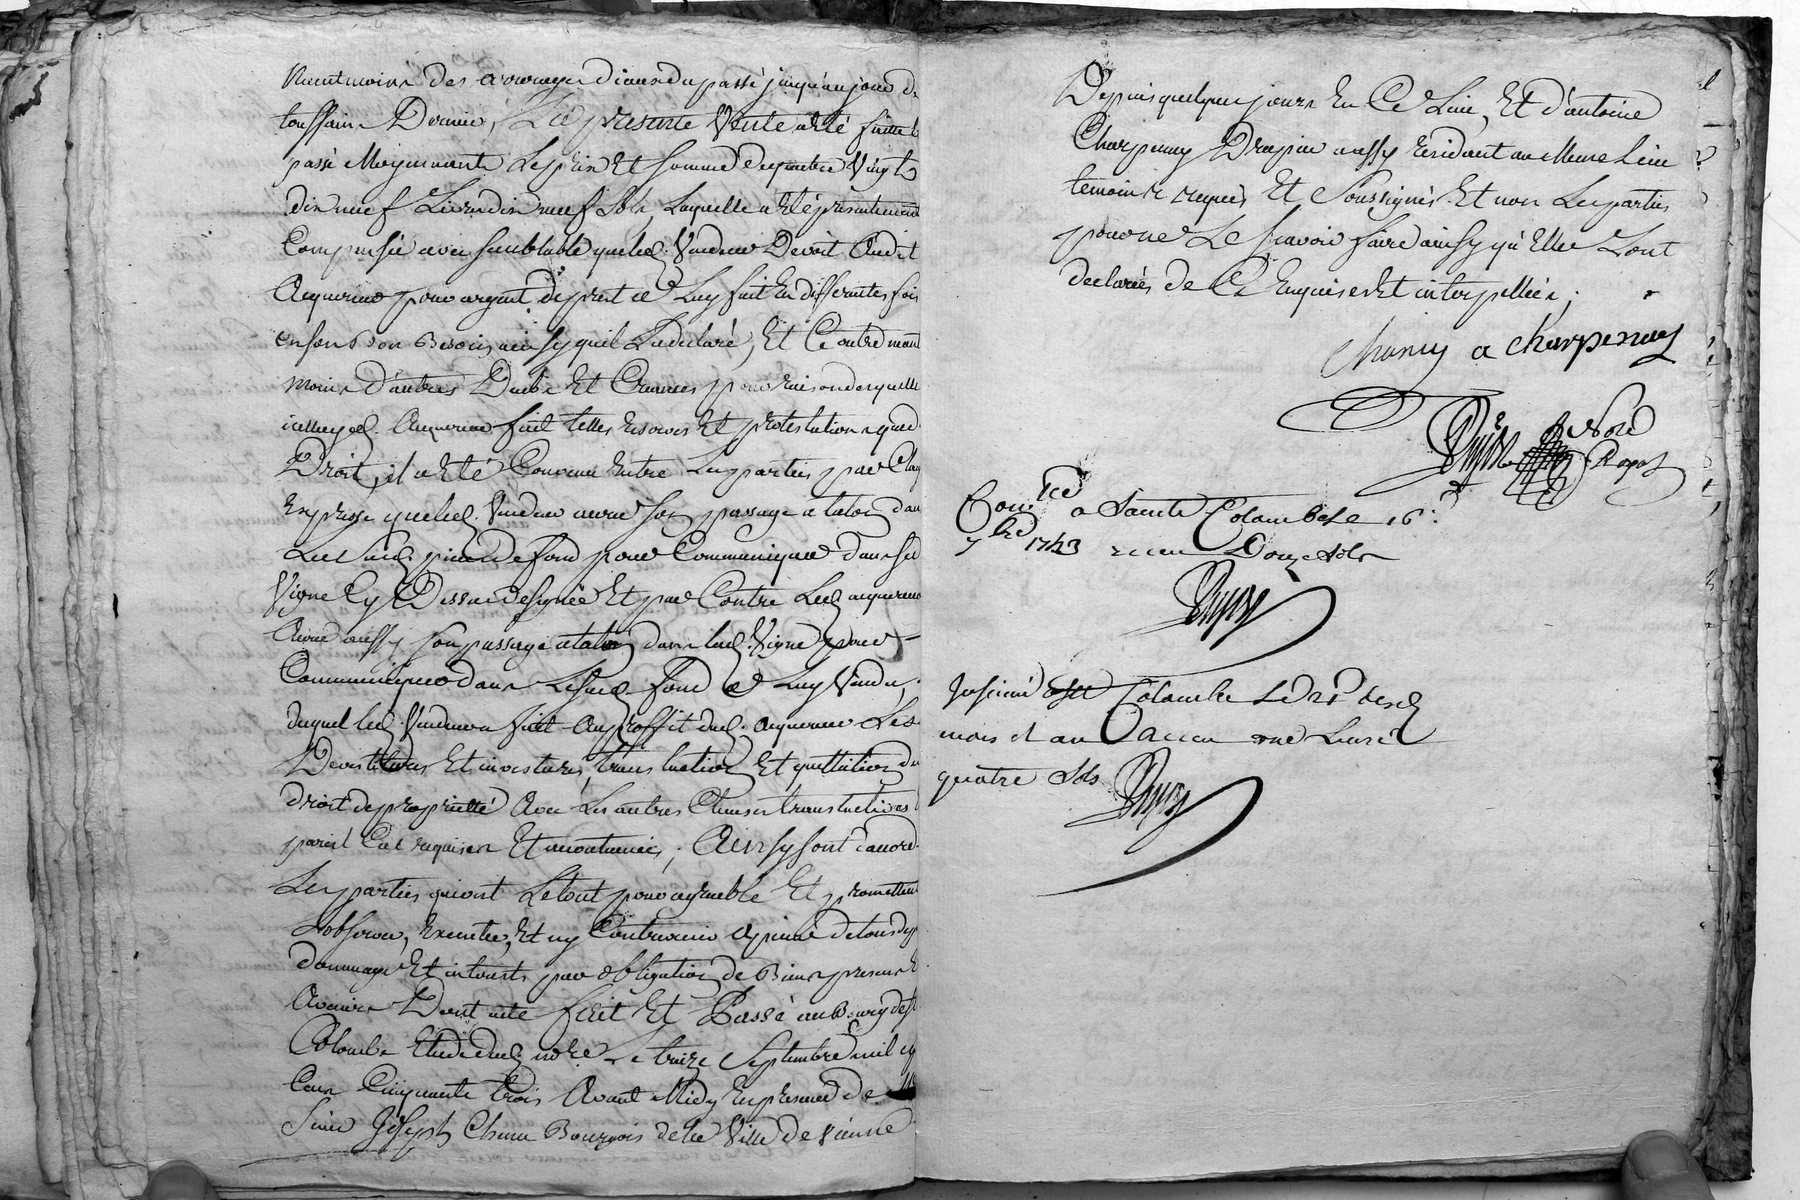 Neantmoins des arrerages d'iceux du passé jusqu'au jour de
toussaint Dernier, La presente Vente a eté faitte &
passé Moyennant Le prix Et somme de quatre Vingt
dix neuf Livres dix neuf sols, Laquelle a eté presentement
Compensée avec semblable que led. Vendeur Devoit Audit
Acquereur pour argent de prest a Luy fait En differantes fois
en son Bon Besoin, ainsy qu'il L'a declaré, Et Ce outre neant
moins d'autres Dubs Et Creances pour raison desquelles
icelluy d. Acquereur fait telles reserves Et protestations que de
Droit, il a eté Convenu Entre Les parties par Clause
Expresse que led. Vendeur aura son passage a talon dans
Led. piece de fond pour Communiquer dans sa
Vigne Cy Dessus designée Et par Contre Led. acquereur
Aura aussy son passage a talon dans lad. Vigne pour
Communiquer dans Lesd. fond a Luy Vendu,
duquel led. Vendeur fait Au proffit dud. acquereur Les
Devestitures Et investitures, translation Et quittation du
droit de proprietté Avec Les autres Clauses translatives
pareil Cas requises Et accoutumées, Ainsy sont d'accord
Les parties qui ont Le tout pour agreable Et promettent
L'observer, Executer, Et n'y Contrevenir a peine de tous depens
dommages Et interests par obligation de Biens presens &
Avenirs Dont acte fait Et Passé au Bourg de Ste
Colombe Etude dud. nore Le treize Septembre mil sept
Cens Cinquante trois Avant Midy En presence de
Sieur Joseph Bourgeois de la Ville de Vienne
Depuis quelques jours En Ce Lieu, Et d'antoine
Charpenay Drapier aussy residant au Meme Lieu
temoins requis Et Soussignés Et non Les parties
pour ne Le scavoir faire ainsy qu'Elles L'ont
declarées de Ce Enquises Et interpellées;
a charpenay
Nore
Royal
a Sainte Colombe Le 16e
7bre recu Douze sols
Insinué a Ste Colombe Le desd.
mois et an recu une Livre
quatre sols